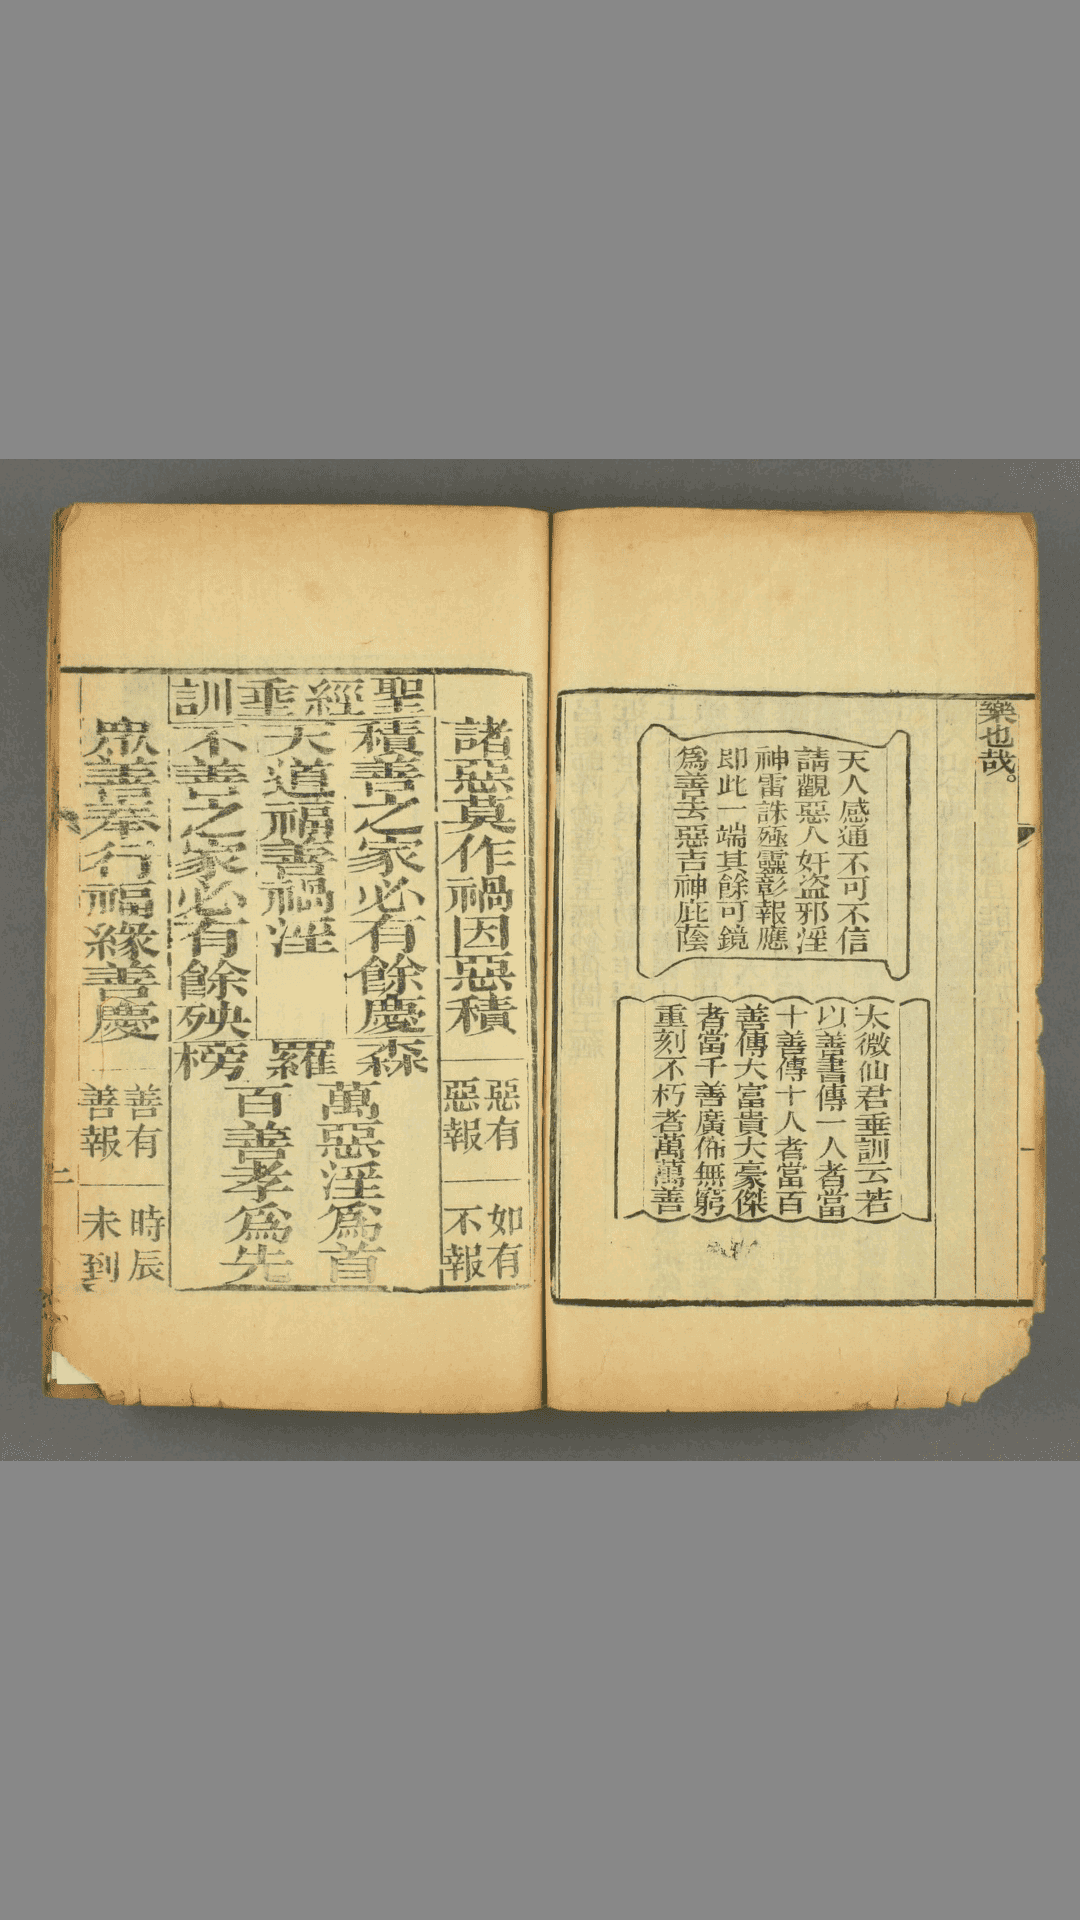 樂也哉。
天人感通不可不信
請觀惡人奸盜邪淫
神雷誅殛靈彰報應
即此一端其餘可鏡
爲善去惡吉神庇蔭
太微仙君垂訓云若
以善書傳一人者當
十善傳十人者當百
善傳大富貴大豪傑
者當千善廣佈無窮
重刻不朽者萬萬善
諸惡莫作禍因惡積
惡有
惡報
如有
不報
聖經垂訓
積善之家必有餘慶
天道福善禍淫
不善之家必有餘殃
森羅榜
萬惡淫爲首
百善孝爲先
眾善奉行福緣善慶
善有
善報
時辰
未到
二